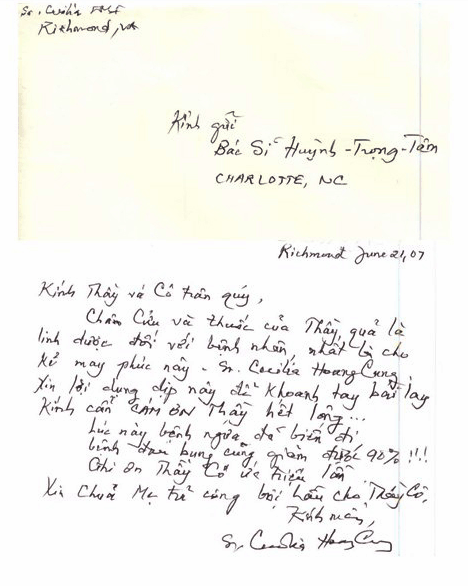 Sr. Cecilia FMSF
Richmond, VA
Kính gửi
Bác Sĩ Huỳnh-Trọng-Tâm
CHARLOTTE, NC
Richmond June 21, 07
Kính Thầy và Cô trân quý,
Châm Cứu và thuốc của Thầy, quả là
linh dược đối với bệnh nhân, nhất là cho
kẻ may phúc này - Sr. Cecilia Hoang Cung,
Xin lợi dụng dịp này để khoanh tay bái lạy
Kính cẩn CÁM ƠN Thầy hết lòng...
Lúc này bệnh ngứa đã biến đi
bệnh đau bụng cũng giảm được 90% !!!
Ghi ơn Thầy Cô ức triệu lần
Xin Chúa Mẹ trả công bội hậu cho Thầy Cô,
Kính mến,
Sr. Cecilia Hoang Cung